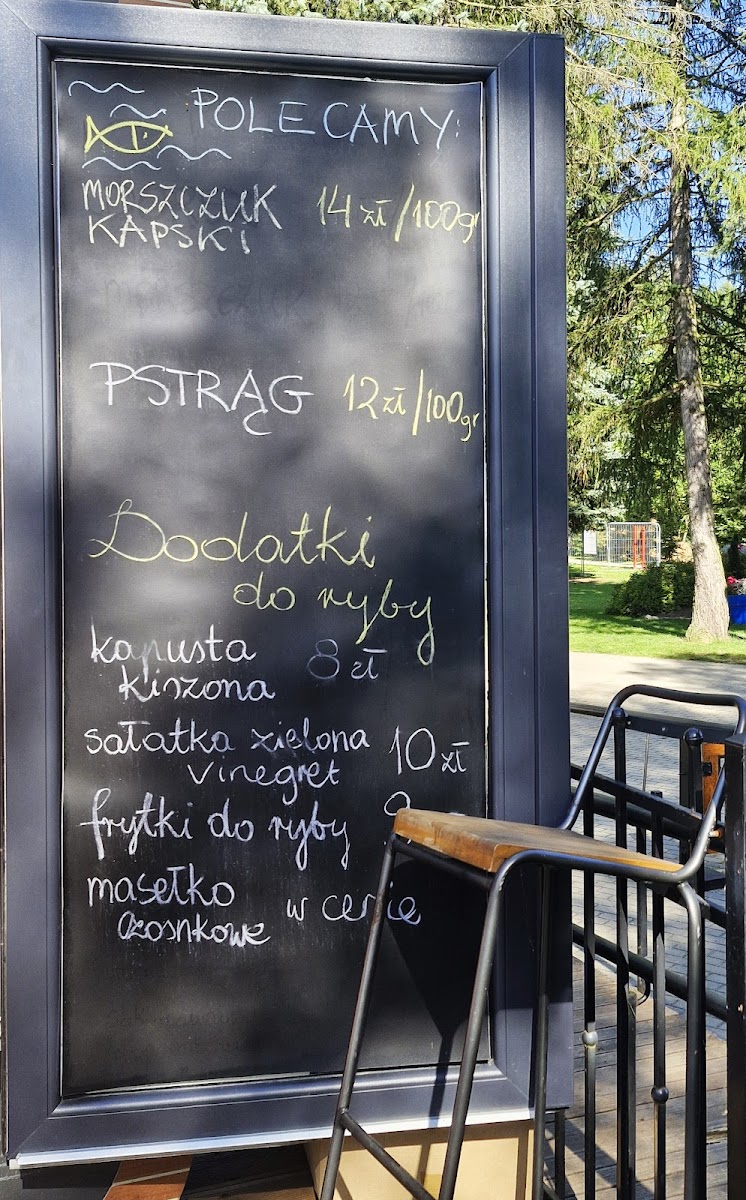 POLECAMY:
MORSZCZUK 14 zł/100gr
KAPSKI
PSTRĄG 12 zł/100gr
Dodatki
do ryby
kapusta 8 zł
kiszona
sałatka zielona 10 zł
vinegret
frytki do ryby
masełko w cenie
czosnkowe